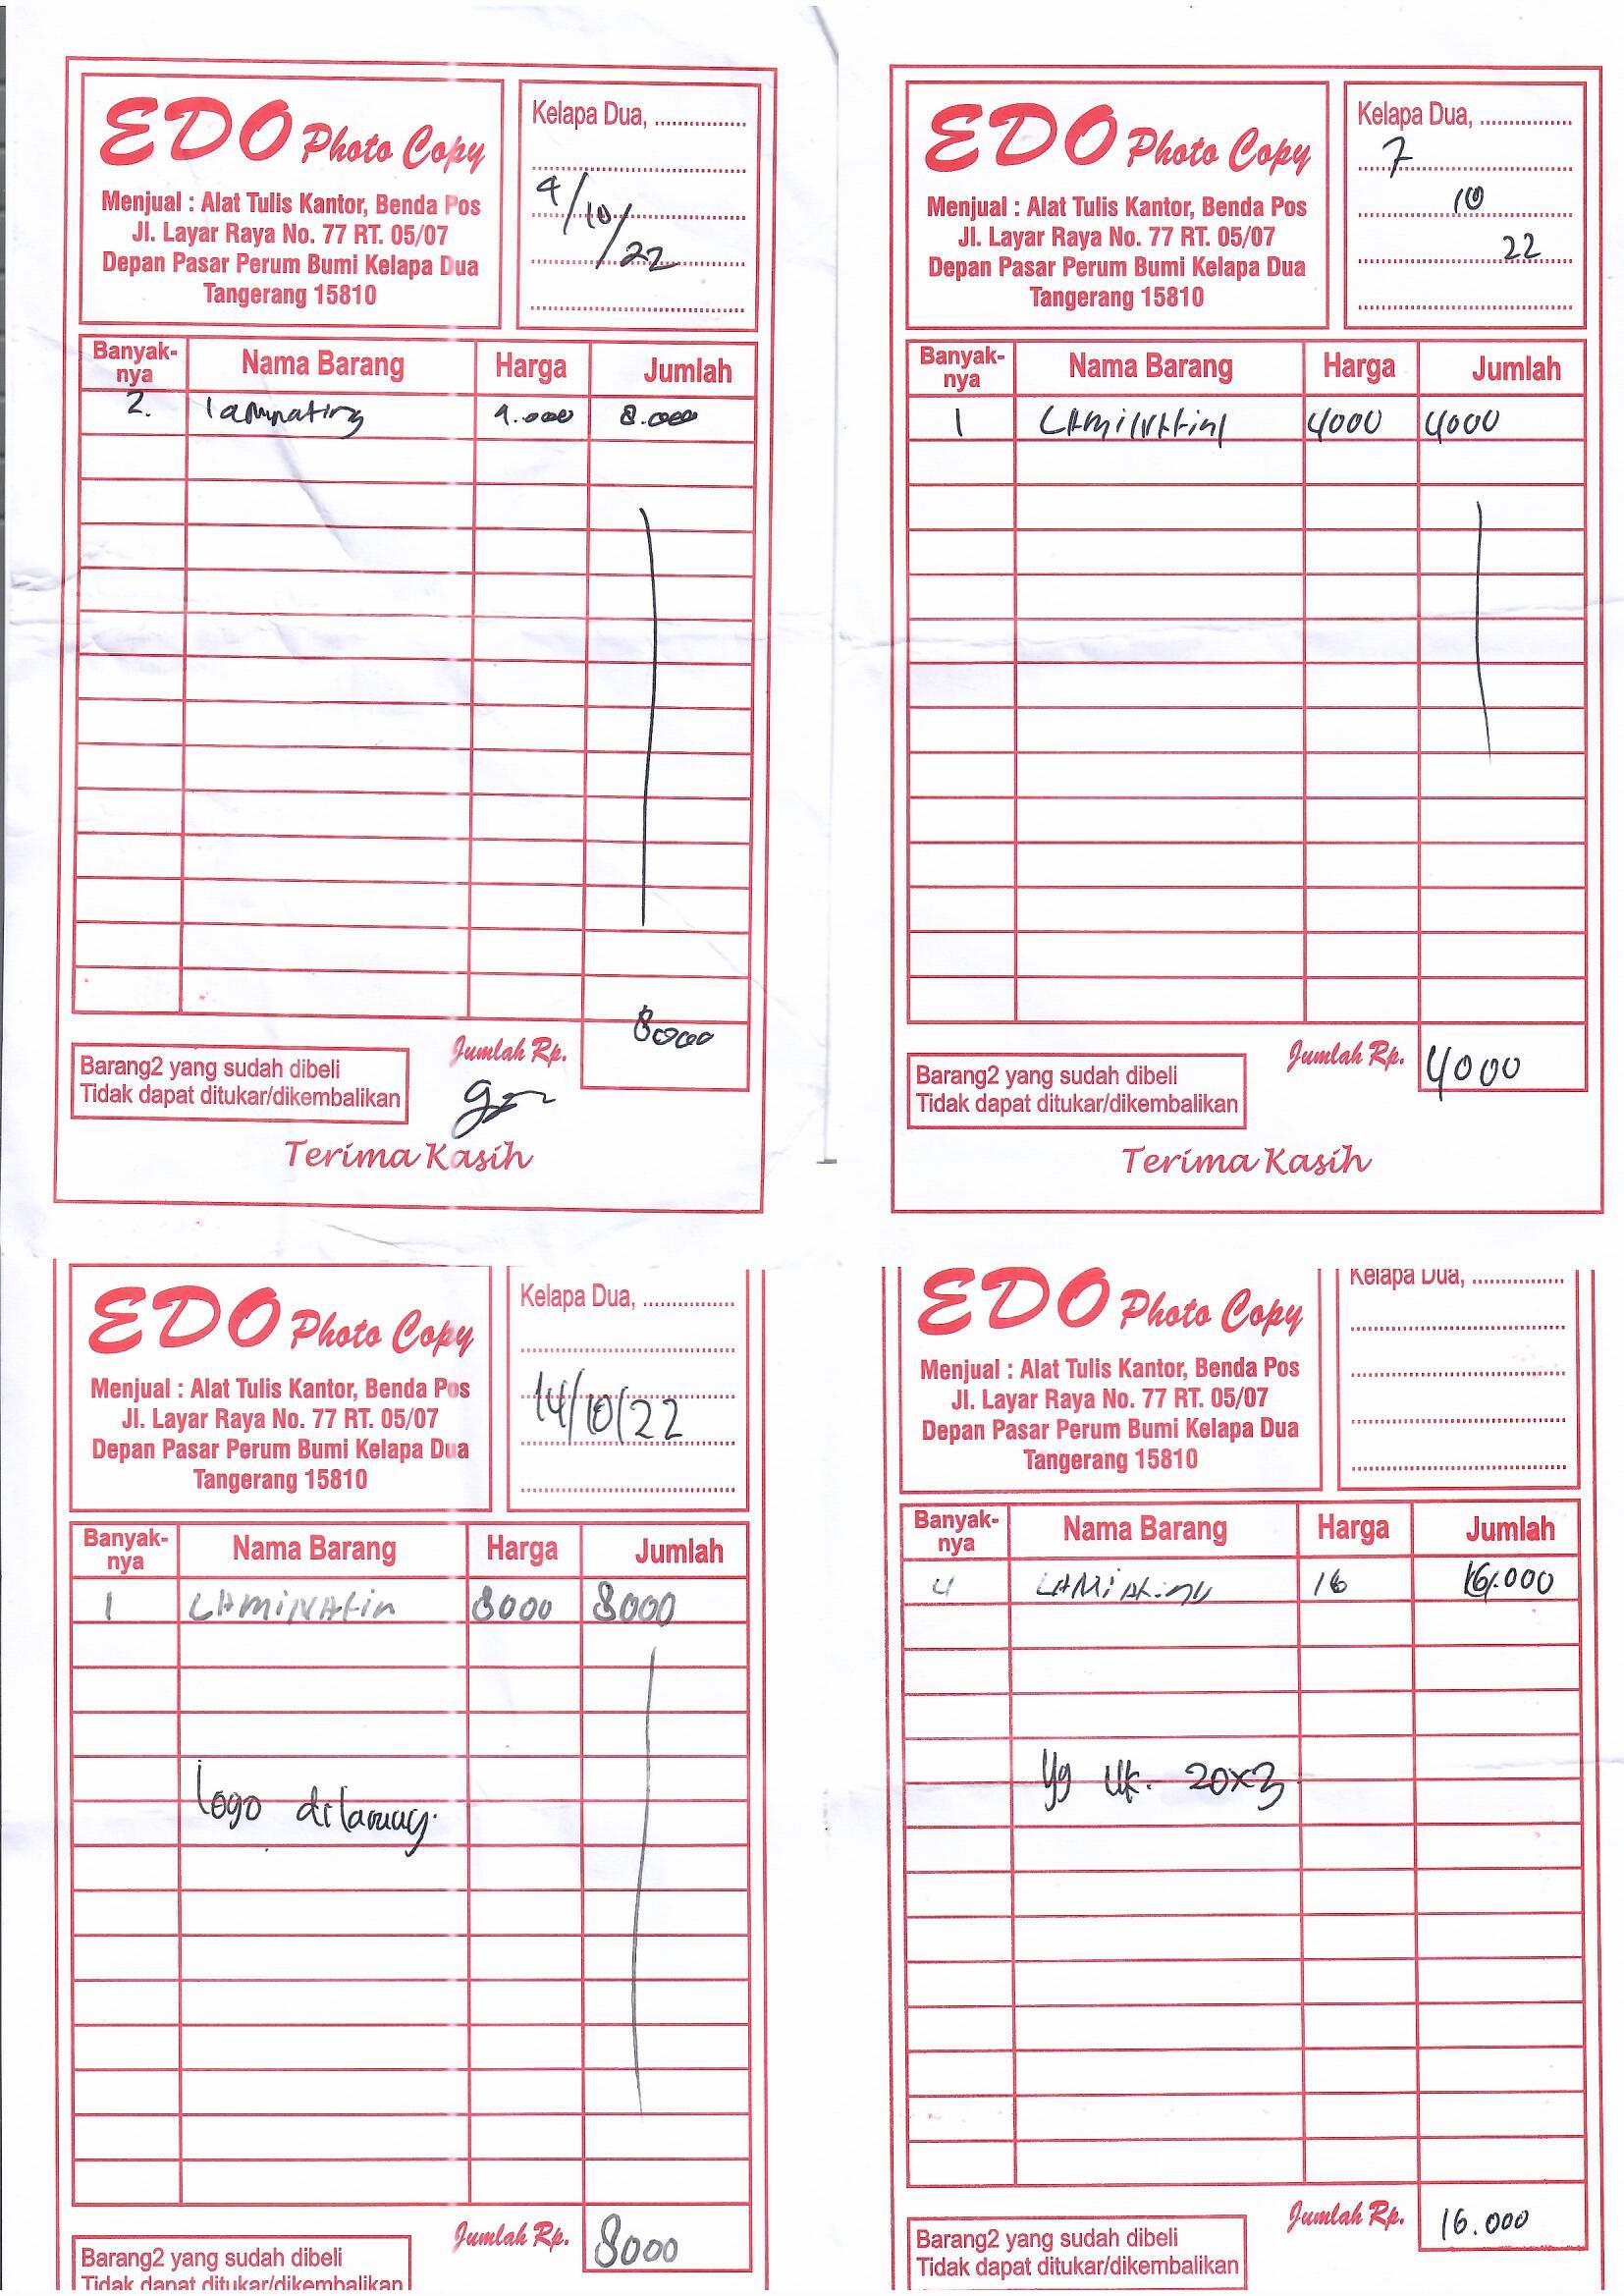 EDO Photo Copy
Menjual : Alat Tulis Kantor, Benda Pos
Jl. Layar Raya No. 77 RT. 05/07
Depan Pasar Perum Bumi Kelapa Dua
Tangerang 15810
Kelapa Dua, ................
4/10/22
Banyak-nya Nama Barang Harga Jumlah
2. laminating 4.000 8.000
Jumlah Rp. 8000
Barang2 yang sudah dibeli
Tidak dapat ditukar/dikembalikan
Terima Kasih
EDO Photo Copy
Menjual : Alat Tulis Kantor, Benda Pos
Jl. Layar Raya No. 77 RT. 05/07
Depan Pasar Perum Bumi Kelapa Dua
Tangerang 15810
Kelapa Dua, ................
7
10
22
Banyak-nya Nama Barang Harga Jumlah
1 4000 4000
Jumlah Rp. 4000
Barang2 yang sudah dibeli
Tidak dapat ditukar/dikembalikan
Terima Kasih
EDO Photo Copy
Menjual : Alat Tulis Kantor, Benda Pos
Jl. Layar Raya No. 77 RT. 05/07
Depan Pasar Perum Bumi Kelapa Dua
Tangerang 15810
Kelapa Dua, ................
14/10/22
Banyak-nya Nama Barang Harga Jumlah
1 LAMiNAtin 8000 8000
logo
Jumlah Rp. 8000
Barang2 yang sudah dibeli
Tidak dapat ditukar/dikembalikan
EDO Photo Copy
Menjual : Alat Tulis Kantor, Benda Pos
Jl. Layar Raya No. 77 RT. 05/07
Depan Pasar Perum Bumi Kelapa Dua
Tangerang 15810
Kelapa Dua, ................
Banyak-nya Nama Barang Harga Jumlah
4 16 16.000
yg uk. 20x3
Jumlah Rp. 16.000
Barang2 yang sudah dibeli
Tidak dapat ditukar/dikembalikan